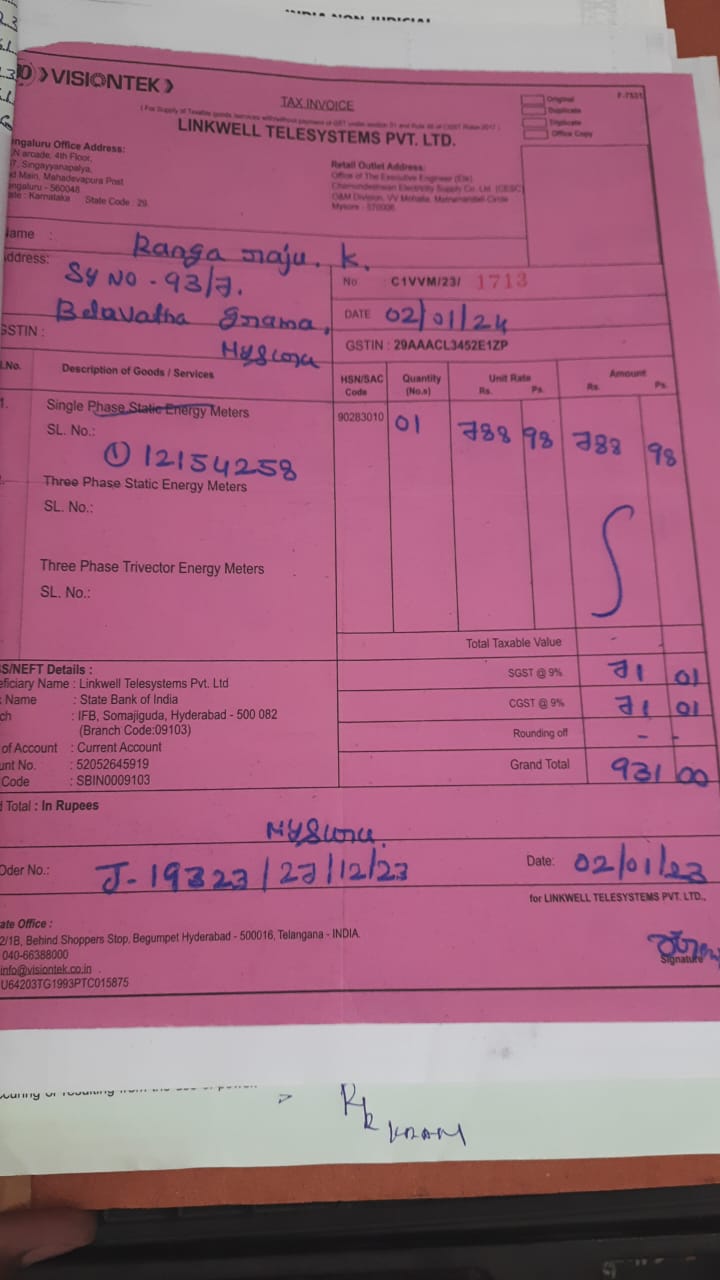 VISIONTEK
TAX INVOICE
LINKWELL TELESYSTEMS PVT. LTD.
Original
Duplicate
Triplicate
Office Copy
ngaluru Office Address:
N arcade, 4th Floor,
7, Singayyanapalya,
d Main, Mahadevapura Post
engaluru - 560048
ate : Karnataka State Code : 29
Retail Outlet Address:
Office of The Executive Engineer (Ele)
Chamundeshwari Electricity Supply Co. Ltd. (CESC)
O&M Division, VV Mohalla,
ame : Ranga raju. K.
ddress: Sy NO - 93/7.
Belavatha Grama,
Mysuru
No. C1VVM/23/ 1713
DATE 02/01/24
GSTIN : 29AAACL3452E1ZP
GSTIN :
.No. Description of Goods / Services HSN/SAC Code Quantity (No.s) Unit Rate Rs. Ps. Amount Rs. Ps.
1. Single Phase Static Energy Meters 90283010 01 788 98 788 98
SL. No.:
① 12154258
Three Phase Static Energy Meters
SL. No.:
Three Phase Trivector Energy Meters
SL. No.:
Total Taxable Value -
SGST @ 9% 71 01
CGST @ 9% 71 01
Rounding off - -
Grand Total 931 00
S/NEFT Details :
eficiary Name : Linkwell Telesystems Pvt. Ltd
Name : State Bank of India
ch : IFB, Somajiguda, Hyderabad - 500 082
(Branch Code:09103)
of Account : Current Account
unt No. : 52052645919
Code : SBIN0009103
Total : In Rupees
Mysuru.
Oder No.: J-19323/27/12/23
Date: 02/01/23
for LINKWELL TELESYSTEMS PVT. LTD.,
Signature
ate Office :
2/1B, Behind Shoppers Stop, Begumpet Hyderabad - 500016, Telangana - INDIA.
040-66388000
info@visiontek.co.in
U64203TG1993PTC015875